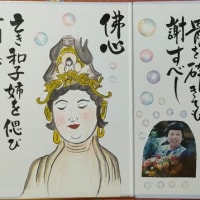 骨を砕きても
謝すべし
佛心
和子姉を偲び